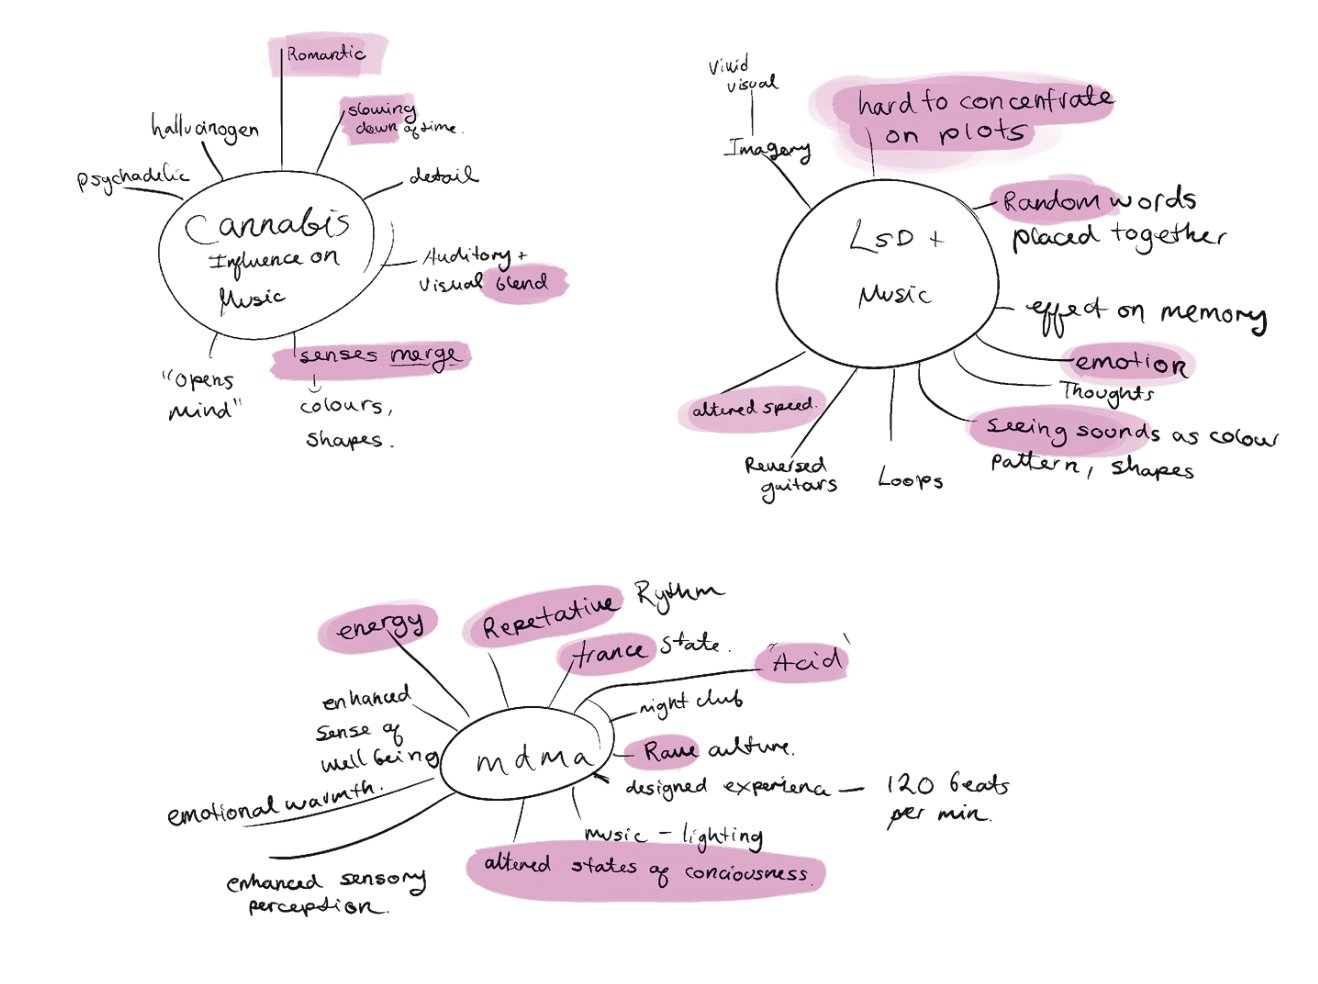 Romantic
slowing
down of time.
hallucinogen
psychadelic
detail
Cannabis
Influence on
Music
Auditory +
visual blend
senses merge
colours,
shapes.
"opens
mind"
Vivid
visual
Imagery
hard to concentrate
on plots
Random words
placed together
LSD +
Music
effect on memory
emotion
Thoughts
seeing sounds as colour
pattern, shapes
altered speed.
Reversed
guitars
Loops
energy
Repetative Rythm
trance state.
"Acid"
night club
Rave culture.
designed experience — 120 beats
per min.
mdma
enhanced
sense of
well being
emotional warmth.
enhanced sensory
perception.
music - lighting
altered states of conciousness.